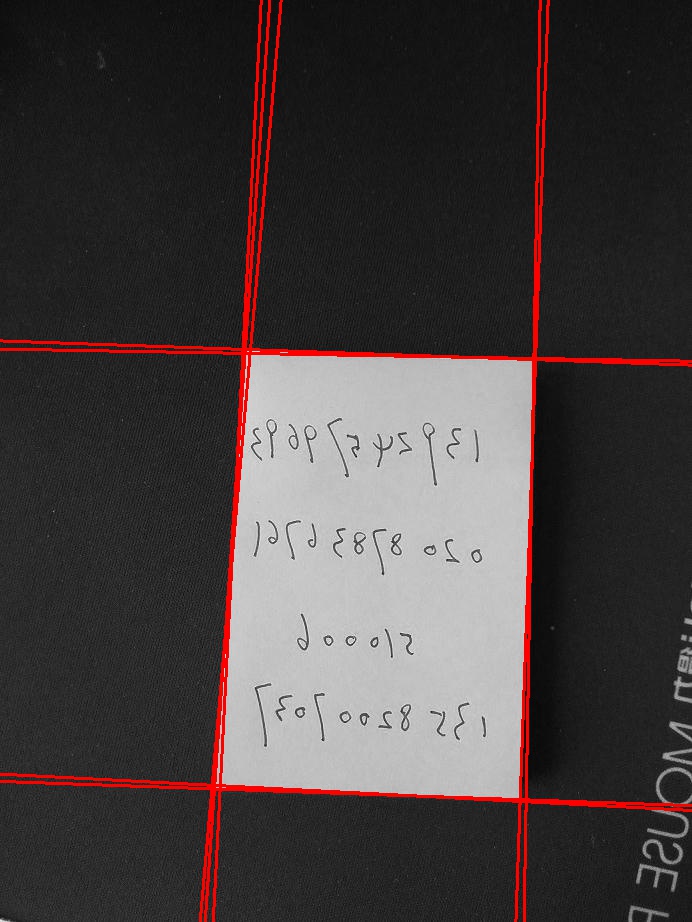 139 2457 9693
020 8783 6761
510006
135 8200 7037
MOUSE P